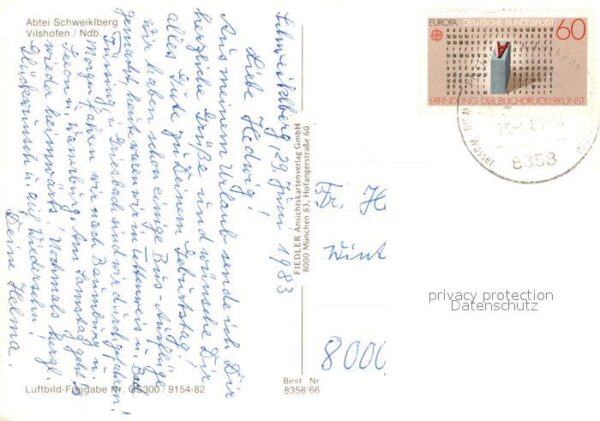 Abtei Schweiklberg
Vilshofen / Ndb.
Schweiklberg, 29. Juni 1983
Liebe Hedwig!
Aus meinem Urlaub sende ich Dir
herzliche Grüße und wünsche Dir
alles Gute zu Deinem Geburtstag!
Wir haben schon einige Bus-Ausflüge
gemacht, heute waren wir in u. Bad
Füssing, sind wir durchgefahren!
Morgen fahren wir nach Baumburg u.
Seeon u. Am Samstag geht es
wieder heimwärts! Nochmals herzl.
Glückwunsch u. auf Wiedersehn!
Deine Helma.
Luftbild-Freigabe Nr. GS300 / 9154-82
FIEDLER Ansichtskartenverlag GmbH
8000 München 83, Hofangerstraße 60
Best. Nr.
8358 66
EUROPA DEUTSCHE BUNDESPOST 60
ERFINDUNG DER BUCHDRUCKERKUNST
8358
Fr. He
Wint
8000
privacy protection
Datenschutz